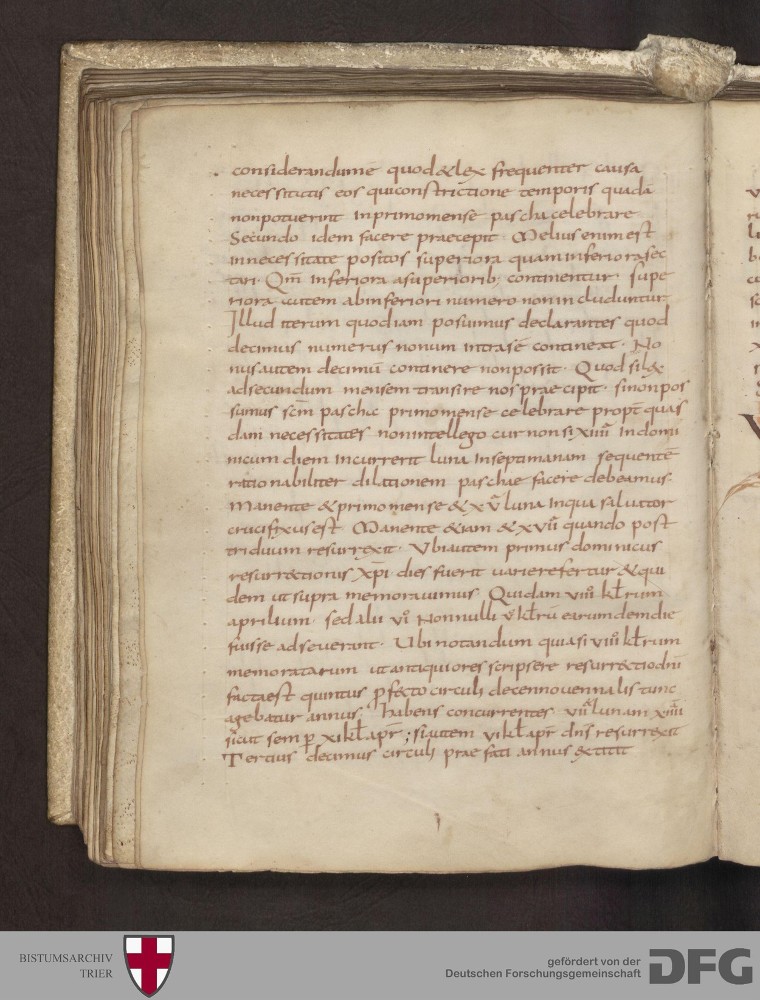 considerandum ē quod & lex frequenter causa
necessitatis eos qui constrictione temporis quadā
non potuerint in primo mense pascha celebrare
Secundo idem facere praecepit. Melius enim est
in necessitate positos superiora quam inferiora sec
tari. Qm̄ inferiora a superiorib; continentur. supe
riora autem ab inferiori numero non includuntur.
Illud iterum quod iam posuimus declarantes quod
decimus numerus nonum intra se contineat. No
nus autem decimū continere non possit. Quod si lex
ad secundum mensem transire nos praecipit. si non pos
sumus scm̄ pascha primo mense celebrare propt̄ quas
dam necessitates non intellego cur non si xiiii in domi
nicum diem incurrerit luna in septimanam sequentē
rationabiliter dilationem paschae facere debeamus.
Manente & primo mense & xv luna in qua saluator
crucifixus est. Manente etiam & xvii quando post
triduum resurrexit. Ubi autem primus dominicus
resurrectionis xp̄i dies fuerit varie refertur & qui
dem ut supra memoravimus. Quidam viii kl̄rum
aprilium. sed alii vi Nonnulli v kl̄rū earundem die
fuisse adseverant. Ubi notandum quia si viii kl̄rum
memoratarum ut antiquiores scripsere resurrectio dn̄i
facta est quintus ꝓfecto circuli decennouennalis tunc
agebatur annus. habens concurrentes vii lunam xiiii
sicut semꝑ xi kl̄ apr̄; si autem vi kl̄ apr̄ dn̄s resurrexit
Tertius decimus circuli praefati annus extitit
BISTUMSARCHIV
TRIER
gefördert von der
Deutschen Forschungsgemeinschaft
DFG